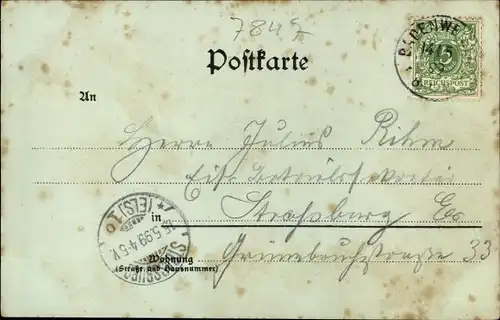 784
Postkarte
BADENWE
14/5
5
REICHSPOST
An
Herrn Julius Rihm
Eis. Betriebssekretär
in Strassburg Els
STRASSBURG (ELS) 1
15.5.99. 4-5 V.
Wohnung
(Straße und Hausnummer)
33